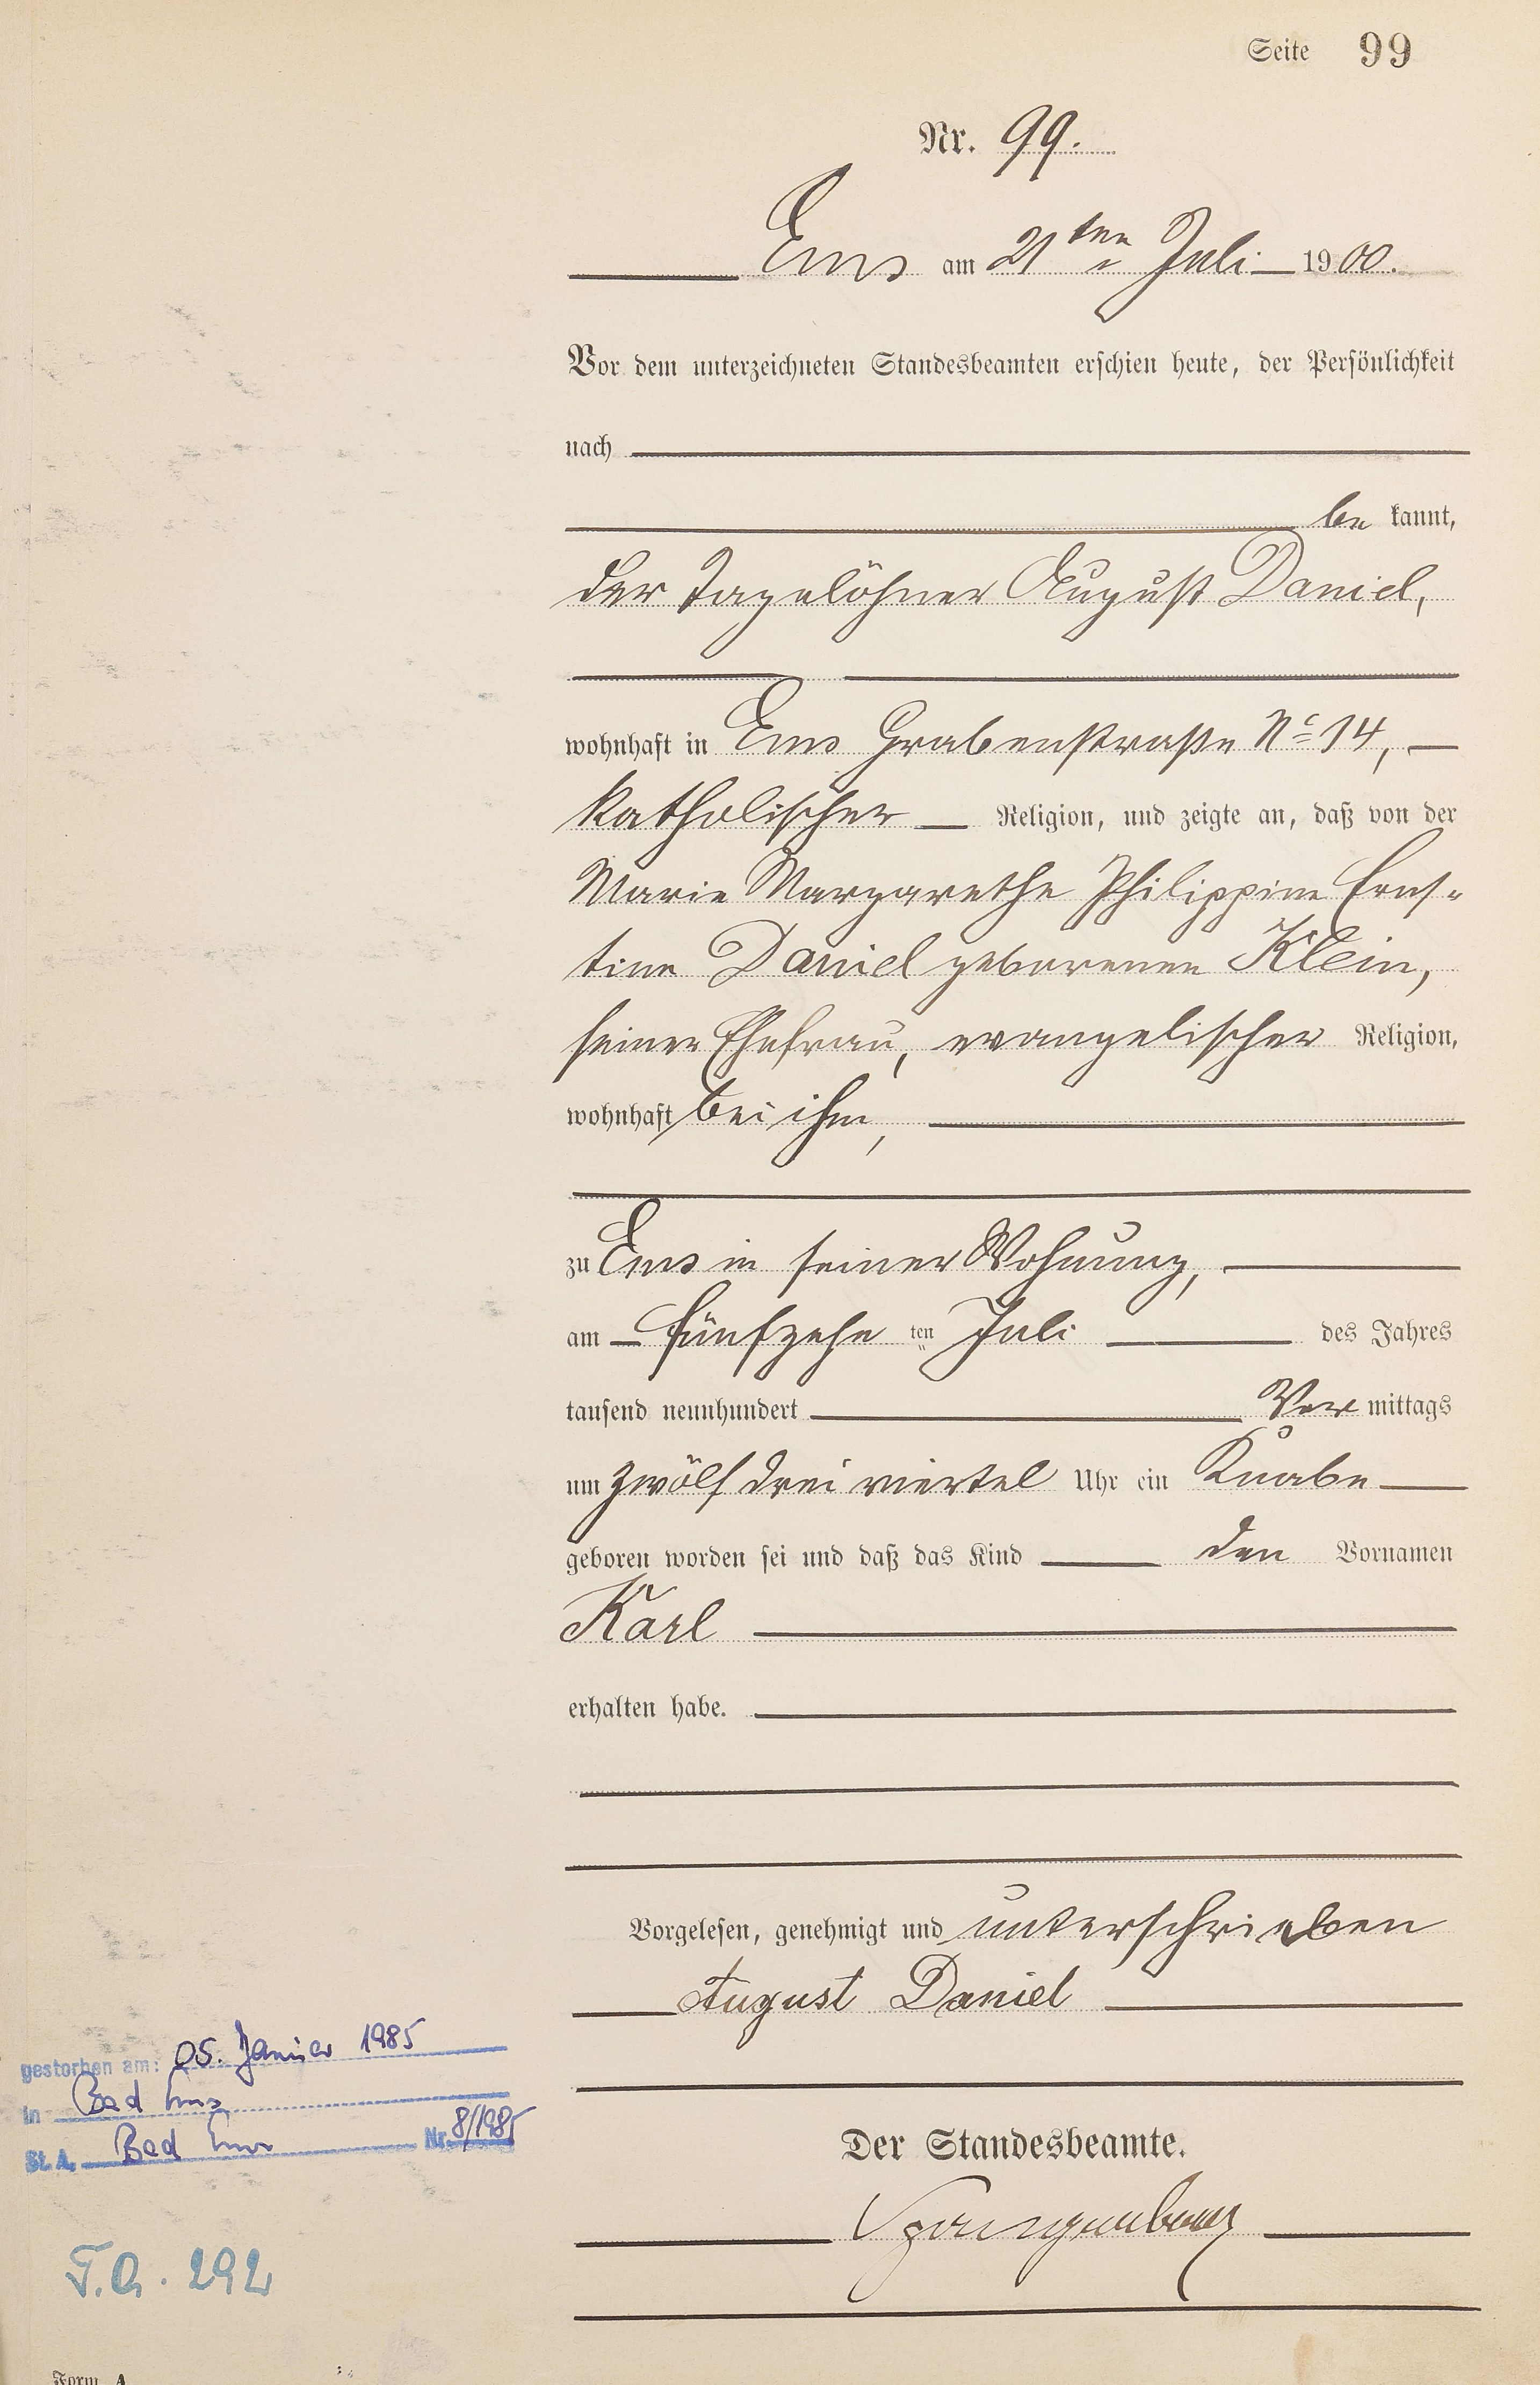 Seite 99
Nr. 99.
Ems am 21ten Juli 1900.
Vor dem unterzeichneten Standesbeamten erschien heute, der Persönlichkeit
nach
be kannt,
der Tagelöhner August Daniel,
wohnhaft in Ems Grabenstraße No 14,
katholischer Religion, und zeigte an, daß von der
Marie Margarethe Philippine Erns-
tine Daniel geborenen Klein,
seiner Ehefrau, evangelischer Religion,
wohnhaft bei ihm,
zu Ems in seiner Wohnung,
am fünfzehn ten Juli des Jahres
tausend neunhundert Vor mittags
um zwölf drei viertel Uhr ein Knabe
geboren worden sei und daß das Kind den Vornamen
Karl
erhalten habe.
Vorgelesen, genehmigt und unterschrieben
August Daniel
Der Standesbeamte.
gestorben am: 05. Januar 1985
in Bad Ems
St. A. Bad Ems Nr. 8/1985
T.A. 292
Form. A